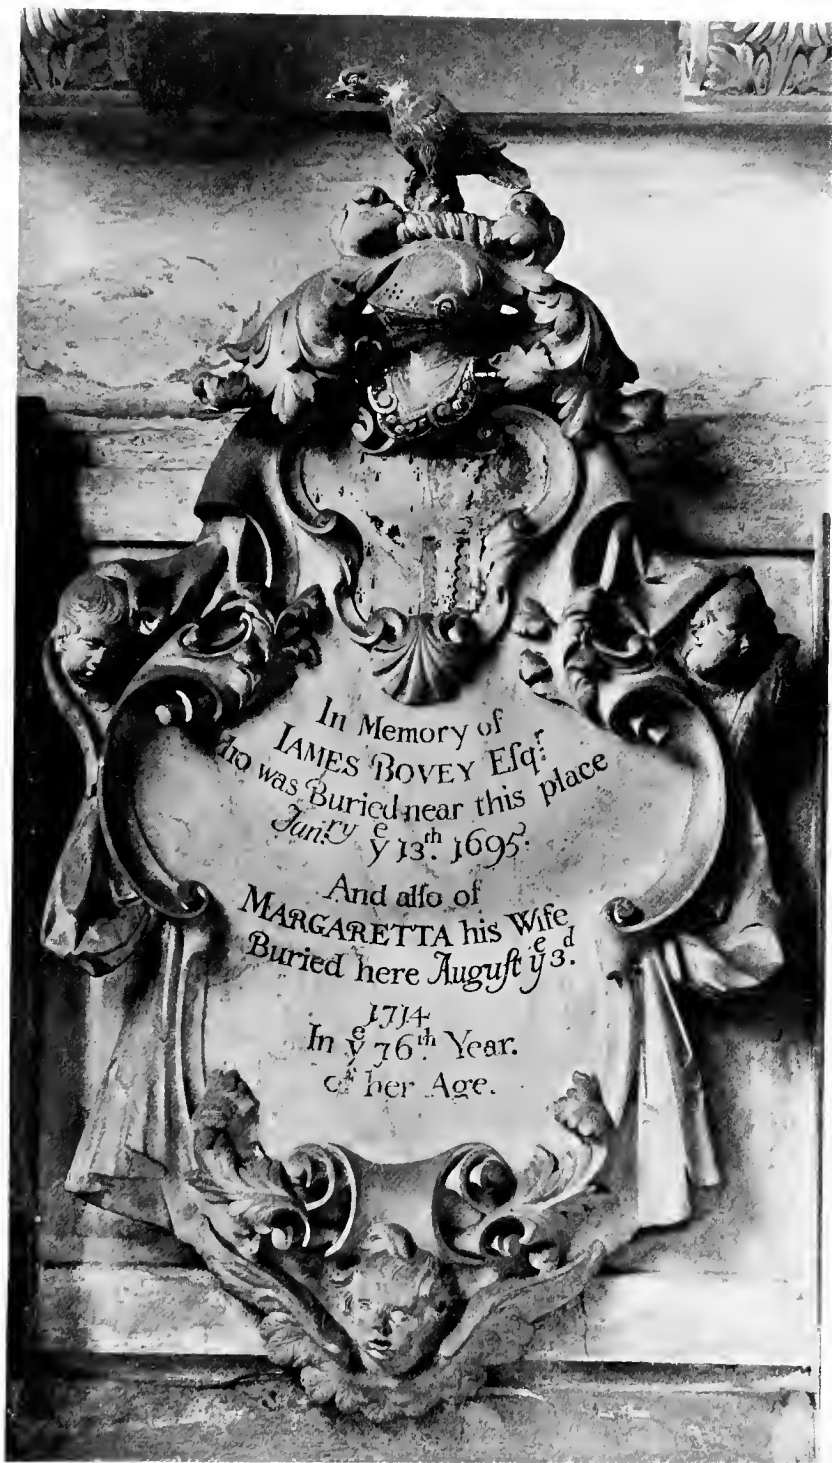 In Memory of
IAMES BOVEY Eſqr.
who was Buried near this place
Jan:ry ye 13th. 1695.
And alſo of
MARGARETTA his Wife
Buried here Auguſt ye 3d.
1714
In ye 76th. Year.
of her Age.